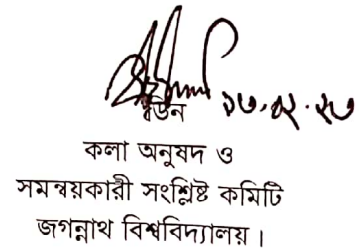 ডিন ১৩.০২.২৩
কলা অনুষদ ও
সমন্বয়কারী সংশ্লিষ্ট কমিটি
জগন্নাথ বিশ্ববিদ্যালয়।